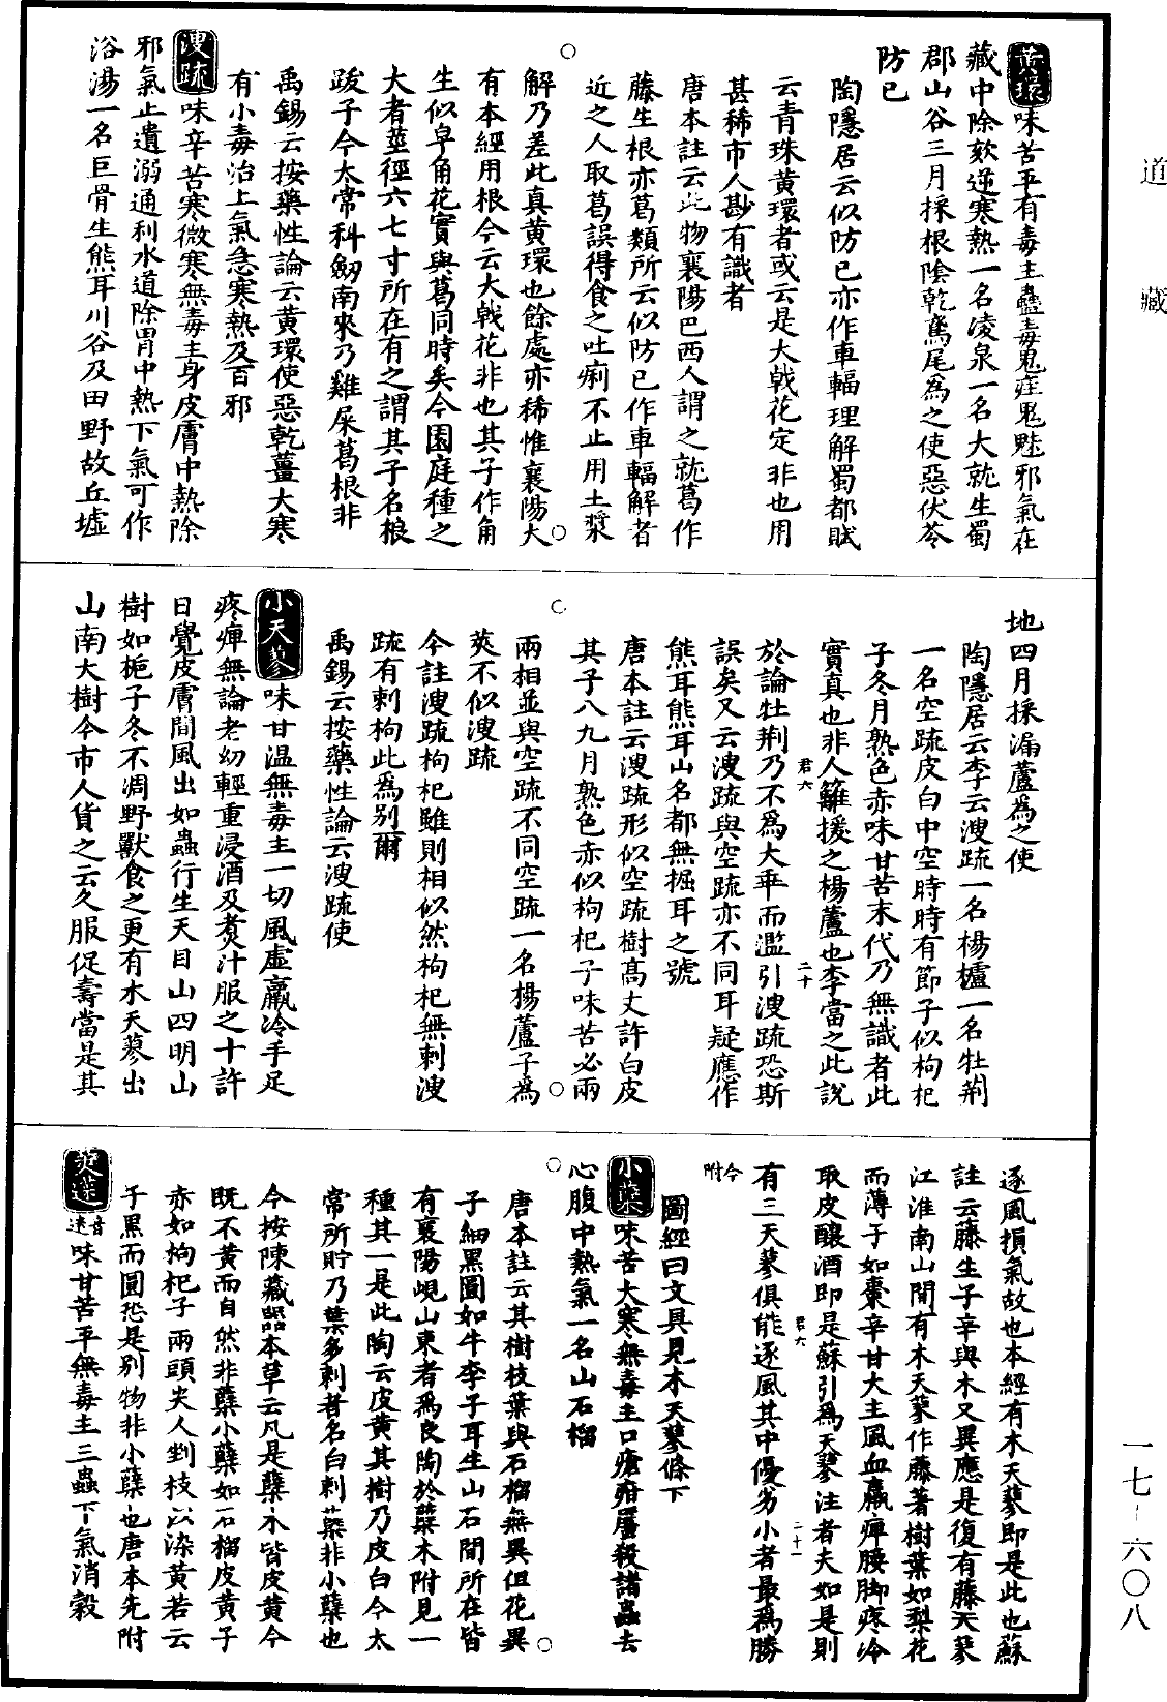 道藏
黃環味苦平有毒主蠱毒鬼疰鬼魅邪氣在
藏中除欬逆寒熱一名凌泉一名大就生蜀
郡山谷三月採根陰乾鳶尾為之使惡伏苓
防已
陶隱居云似防已亦作車輻理解蜀都賦
云青珠黃環者或云是大戟花定非也用
甚稀市人尠有識者
唐本註云此物襄陽巴西人謂之就葛作
藤生根亦葛類所云似防已作車輻解者
近之人取葛誤得食之吐痢不止用土漿
解乃差此真黃環也餘處亦稀惟襄陽大
有本經用根今云大戟花非也其子作角
生似皁角花實與葛同時矣今園庭種之
大者莖徑六七寸所在有之謂其子名狼
跋子今太常科劒南來乃雞屎葛根非
禹錫云按藥性論云黃環使惡乾薑大寒
有小毒治上氣急寒熱及百邪
溲疏味辛苦寒微寒無毒主身皮膚中熱除
邪氣止遺溺通利水道除胃中熱下氣可作
浴湯一名巨骨生熊耳川谷及田野故丘墟
地四月採漏蘆為之使
陶隱居云李云溲疏一名楊櫨一名牡荆
一名空疏皮白中空時時有節子似枸杞
子冬月熟色赤味甘苦末代乃無識者此
實真也非人籬援之楊蘆也李當之此說
於論牡荆乃不為大乖而濫引溲疏恐斯
誤矣又云溲疏與空疏亦不同耳疑應作
熊耳熊耳山名都無掘耳之號
唐本註云溲疏形似空疏樹高丈許白皮
其子八九月熟色赤似枸杞子味苦必兩
兩相並與空疏不同空疏一名楊蘆子為
莢不似溲疏
今註溲疏枸杞雖則相似然枸杞無刺溲
疏有刺枸此為別爾
禹錫云按藥性論云溲疏使
小天蓼味甘溫無毒主一切風虛羸冷手足
疼痺無論老幼輕重浸酒及煑汁服之十許
日覺皮膚間風出如蟲行生天目山四明山
樹如梔子冬不凋野獸食之更有木天蓼出
山南大樹今市人貨之云久服促壽當是其
君六
二十
逐風損氣故也本經有木天蓼即是此也蘇
註云藤生子辛與木又異應是復有藤天蓼
江淮南山間有木天蓼作藤著樹葉如梨花
而薄子如棗辛甘大主風血羸痺腰脚疼冷
取皮釀酒即是蘇引為天蓼注者夫如是則
有三天蓼俱能逐風其中優劣小者最為勝
今附
君六
二十一
圖經曰文具見木天蓼條下
小蘗味苦大寒無毒主口瘡疳䘌殺諸蟲去
心腹中熱氣一名山石榴
唐本註云其樹枝葉與石榴無異但花異
子細黑圓如牛李子耳生山石間所在皆
有襄陽峴山東者為良陶於蘗木附見一
種其一是此陶云皮黃其樹乃皮白今太
常所貯乃葉多刺者名白刺蘗非小蘗也
今按陳藏器本草云凡是蘗木皆皮黃今
既不黃而自然非蘗小蘗如石榴皮黃子
赤如枸杞子兩頭尖人剉枝以染黃若云
子黑而圓恐是別物非小蘗也唐本先附
莢蒾音迷味甘苦平無毒主三蟲下氣消穀
一七–六〇八